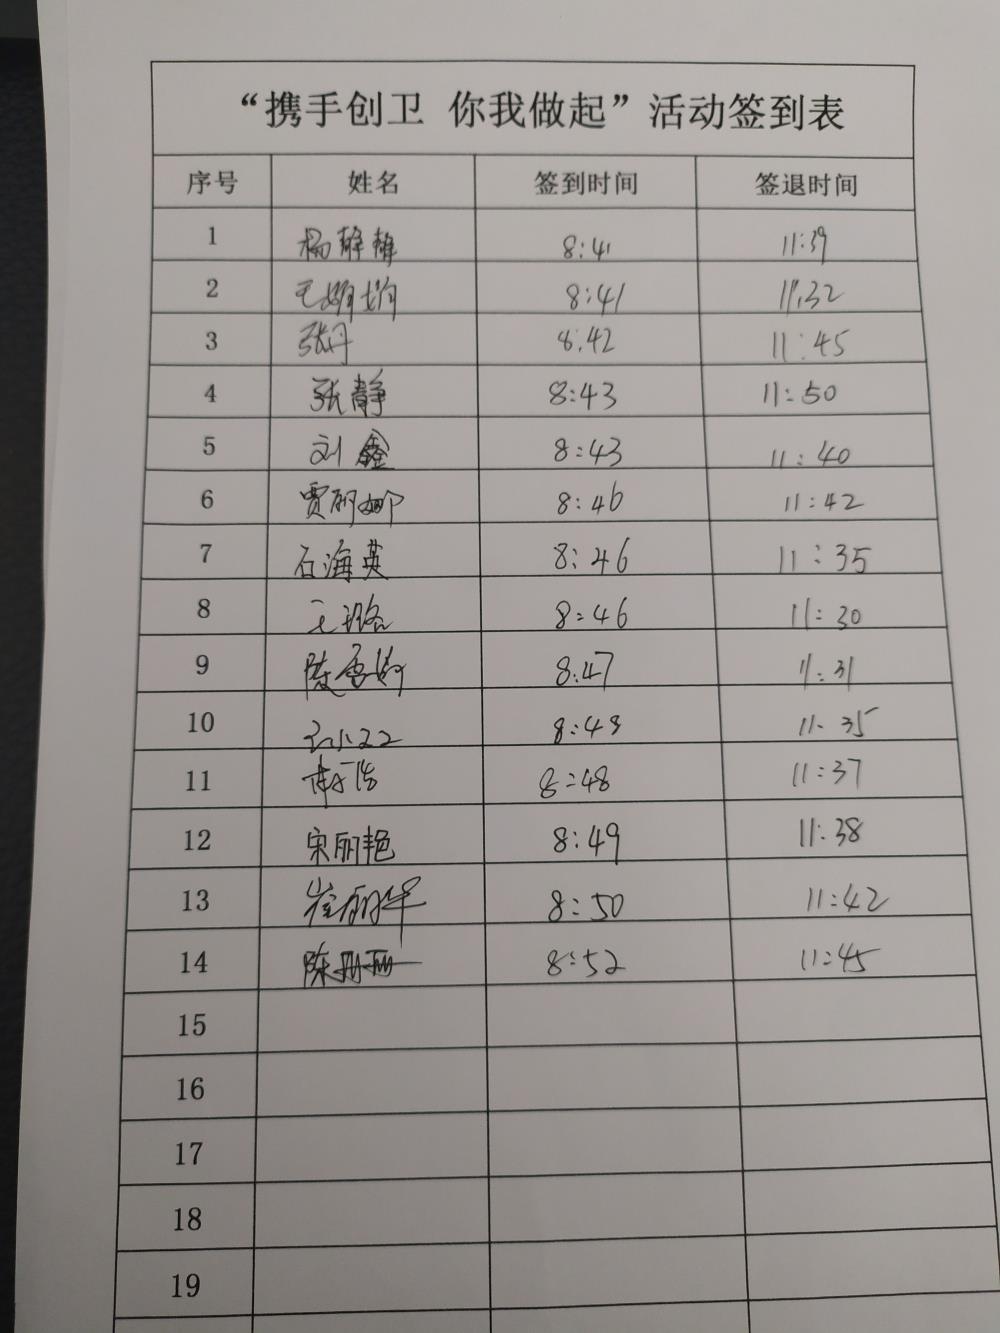 “携手创卫 你我做起”活动签到表
序号 姓名 签到时间 签退时间
1 杨静静 8:41 11:39
2 王娟娟 8:41 11:32
3 张丹 8:42 11:45
4 张静 8:43 11:50
5 刘鑫 8:43 11:40
6 贾丽娜 8:46 11:42
7 石海英 8:46 11:35
8 王璐 8:46 11:30
9 8:47 11:31
10 11:35
11 8:48 11:37
12 宋丽艳 8:49 11:38
13 崔丽华 8:50 11:42
14 陈丹丹 8:52 11:45
15
16
17
18
19